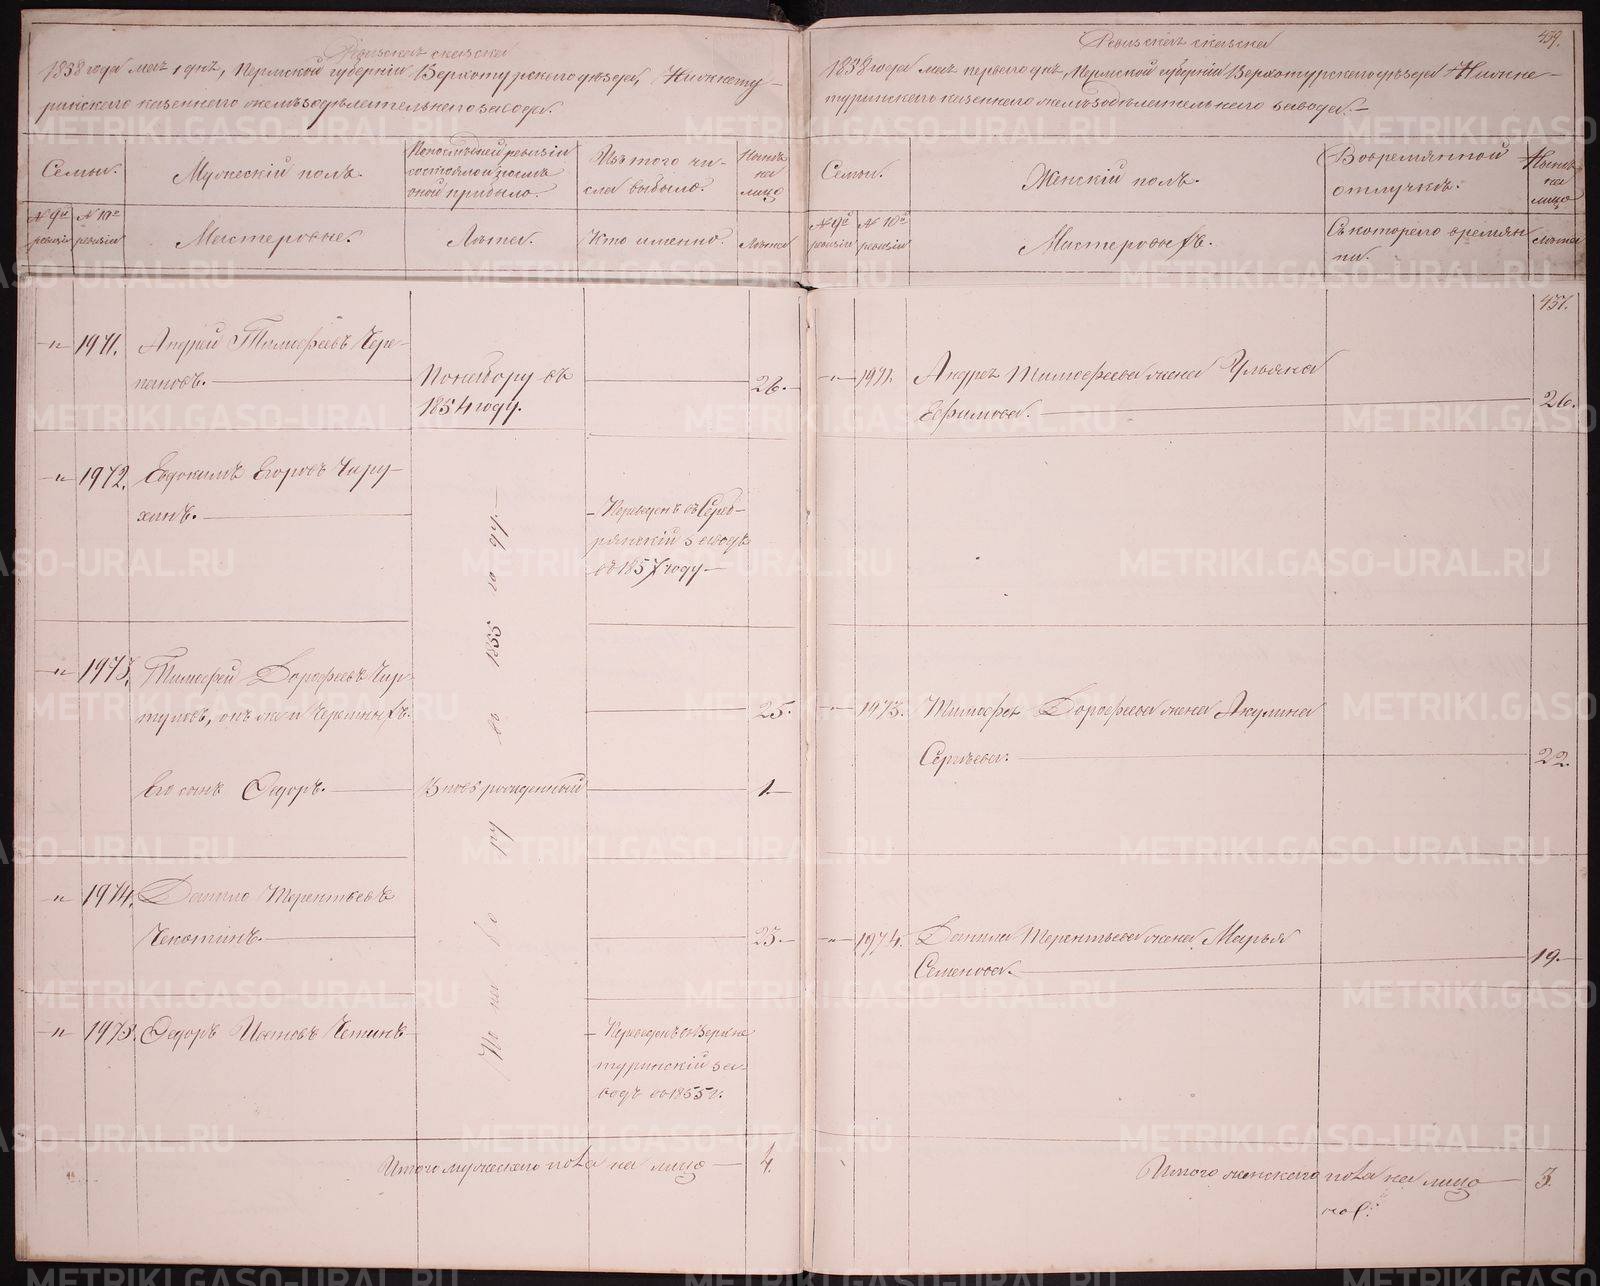 Ревизская сказка
1858 года мая 1 дня, Пермской губерніи Верхотурскаго уезда, Нижнету-
ринскаго казеннаго железоделательнаго завода.
Семьи.
Мужескій полъ.
По последней ревизіи
состояло и после
оной прибыло.
Изъ того чи-
сла выбыло.
Ныне
на
лицо
№ 9й
ревизіи
№ 10й
ревизіи
Мастеровые.
Лета.
Кто именно.
Лета
—„— 1971. Андрей Тимофеевъ Чере-
пановъ.
По набору въ
1854 году.
26.
—„— 1972. Евдокимъ Егоровъ Чиру-
хинъ.
Переведенъ въ Сереб-
рянскій заводъ
въ 1857 году
—„— 1973. Тимофей Дорофеевъ Чир-
онъ же и Черемныхъ.
25.
Его сынъ Федоръ.
Вновь рожденный
1.
—„— 1974. Данило Терентьевъ
Чекотинъ.
23.
—„— 1975. Федоръ Чепинъ
Переведенъ въ Верхне
туринскій за-
водъ въ 1855 г.
По на бо ру во 1855 го ду.
Итого мужескаго пола на лицо 4.
Ревизская сказка
439.
1858 года мая перваго дня, Пермской губерніи Верхотурскаго уезда Нижне-
туринскаго казеннаго железоделательнаго завода.
Семьи.
Женскій полъ.
Во временной
отлучке.
Ныне
на
лицо
№ 9й
ревизіи
№ 10й
ревизіи
Мастеровыхъ.
Съ котораго времян
ни.
Лета
437.
—„— 1971. Андрея Тимофеева жена Ульяна
Ефимова.
26.
—„— 1973. Тимофея Дорофеева жена Акулина
Сергеева.
22.
—„— 1974. Данила Терентьева жена Марья
Семенова.
19.
Итого женскаго пола на лицо 3.
METRIKI.GASO-URAL.RU